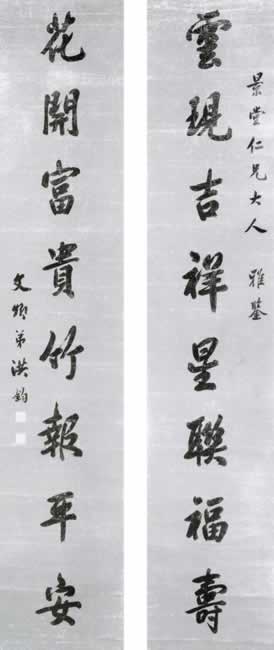 景堂仁兄大人 雅鑒
雲現吉祥星聯福壽
花開富貴竹報平安
文卿弟洪鈞